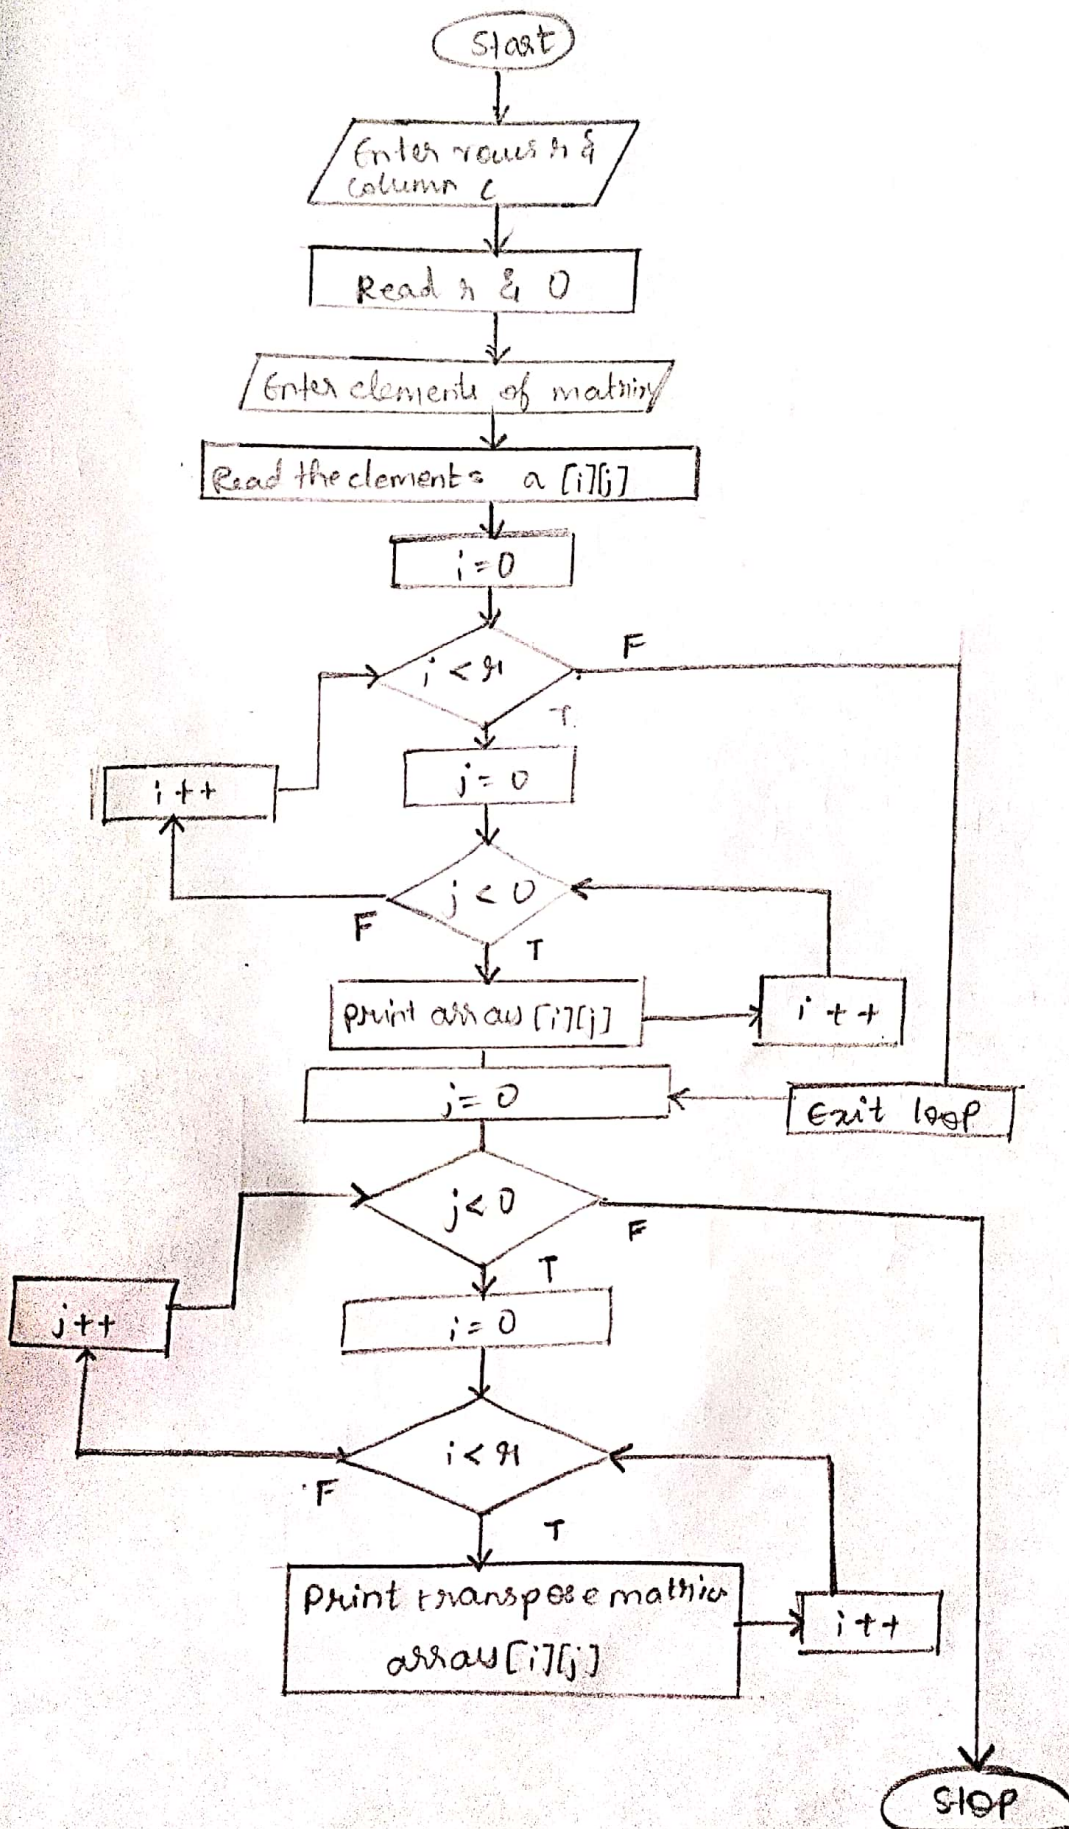 Start
Enter rows r &
column c
Read r & 0
Enter elements of matrix
Read the elements a [i][j]
i=0
i<r
F
T
j=0
i++
j<0
F
T
print array [i][j]
i++
j=0
Exit loop
j<0
F
T
j++
i=0
i<r
F
T
Print transpose matrix
array[i][j]
i++
Stop